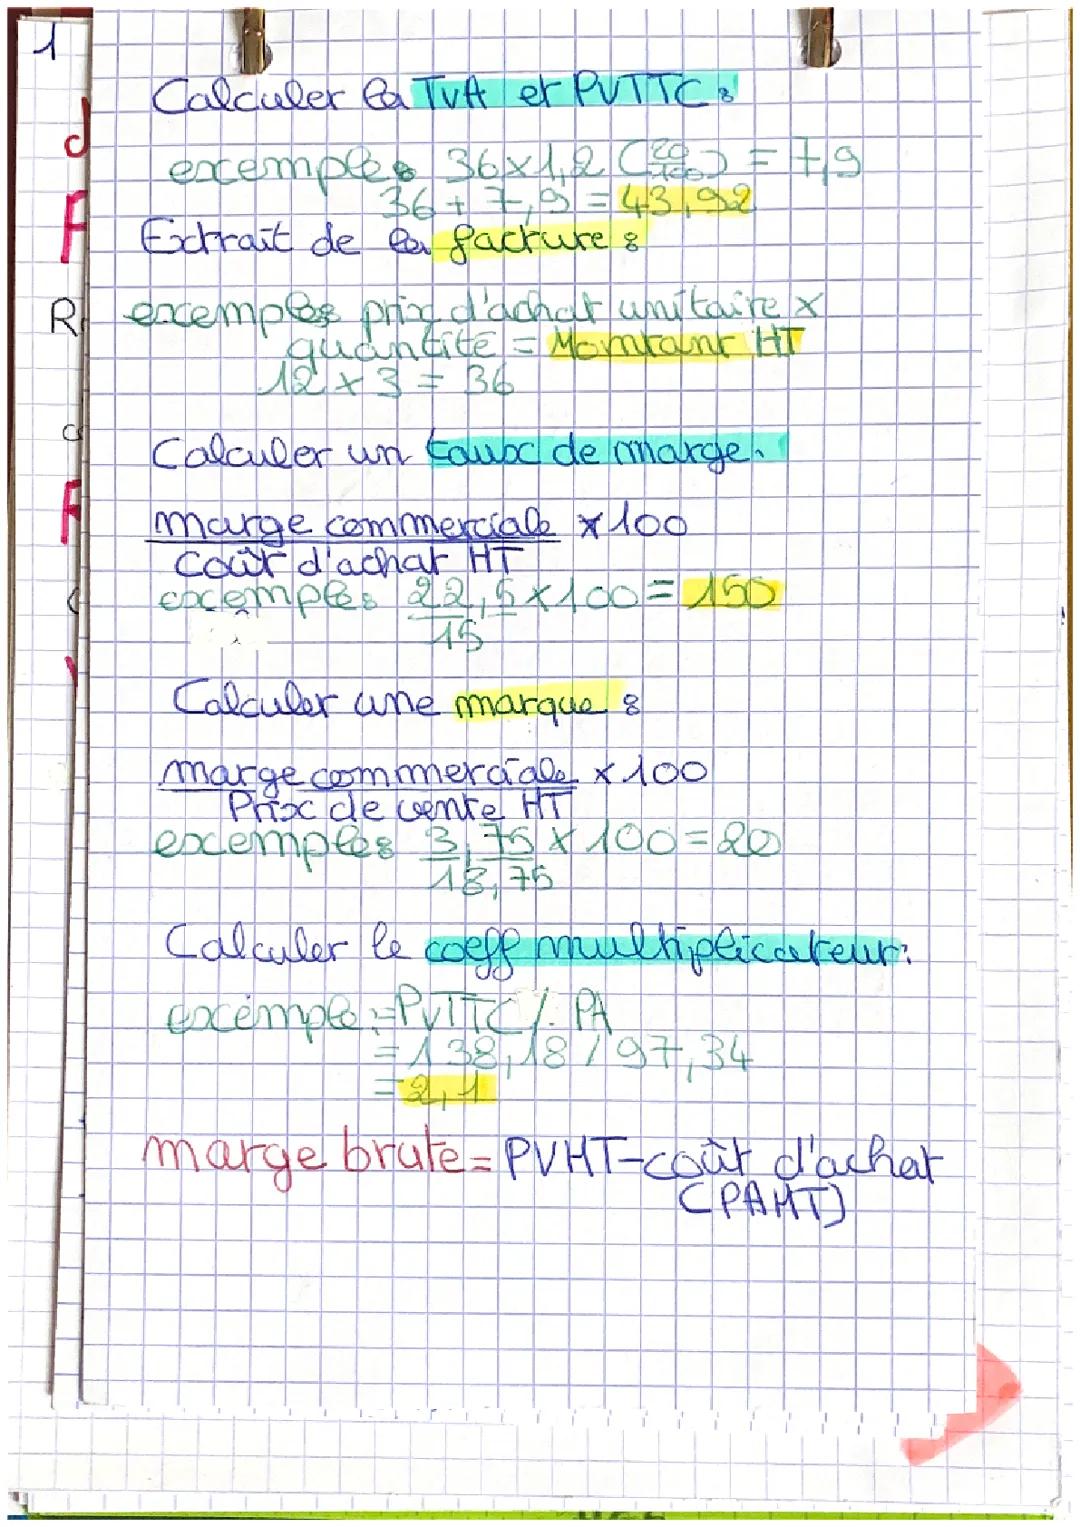 1
Calculer la TVA et PVTTC :
exemple : 36 x 1,2 (20/100) = 7,9
36 + 7,9 = 43,92
Extrait de la facture :
exemple : prix d'achat unitaire x
quantité = Montant HT
12 x 3 = 36
Calculer un taux de marge.
marge commerciale x 100
Coût d'achat HT
exemple : 22,5 x 100 = 150
15
Calculer une marque :
marge commerciale x 100
Prix de vente HT
exemple : 3,75 x 100 = 20
18,75
Calculer le coeff multiplicateur :
exemple := PVTTC /. PA
= 138,18 / 97,34
= 2,1
marge brute = PVHT - coût d'achat
(PAHT)